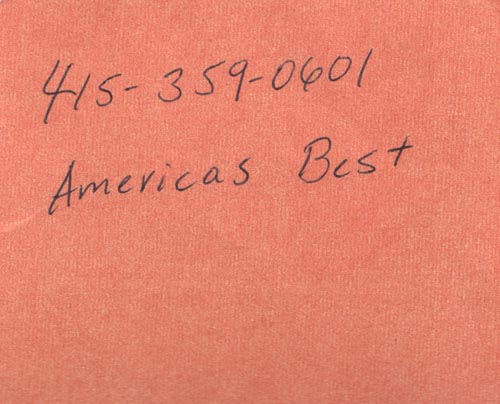 415-359-0601
Americas Best